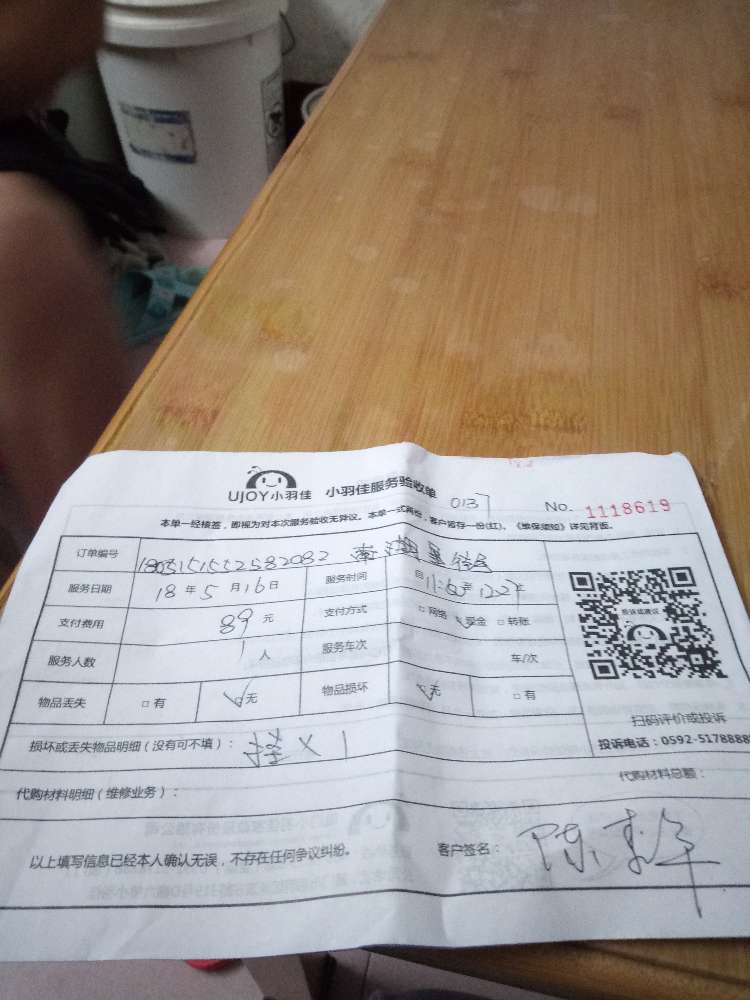 UJOY小羽佳 小羽佳服务验收单 0137 No. 1118619
本单一经核签，即视为对本次服务验收无异议。本单一式两份，客户留存一份(红)，《维保须知》详见背面。
订单编号
服务日期 18 年 5 月 16 日 服务时间 自 至 止
支付费用 89 元 支付方式 □ 网络 ☑ 现金 □ 转账
服务人数 1 人 服务车次 车/次
物品丢失 □ 有 ☑ 无 物品损坏 ☑ 无 □ 有
投诉或建议
扫码评价或投诉
投诉电话：0592-5178888
损坏或丢失物品明细（没有可不填）：
代购材料明细（维修业务）： 代购材料总额：
以上填写信息已经本人确认无误，不存在任何争议纠纷。 客户签名：